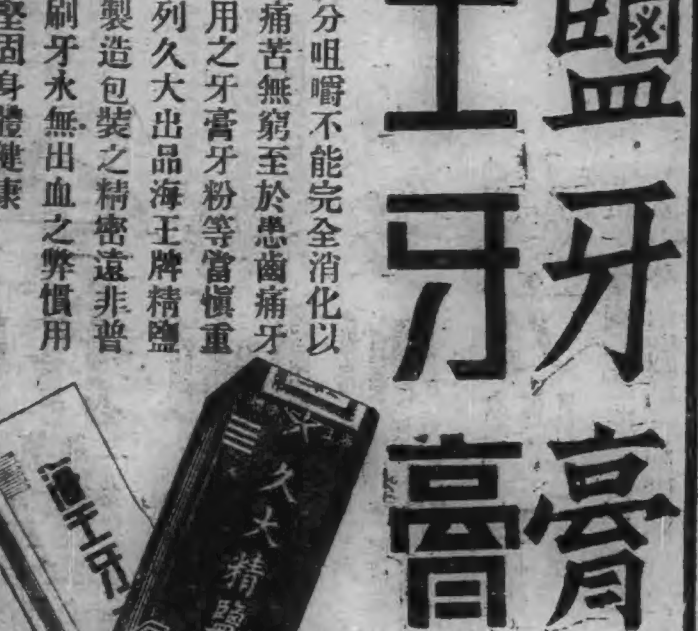 鹽牙膏
王牙膏
分咀嚼不能完全消化以
痛苦無窮至於患齒痛牙
用之牙膏牙粉等當慎重
列久大出品海王牌精鹽
製造包裝之精密遠非普
刷牙永無出血之弊慣用
堅固身體健康
久大精鹽
海王牙